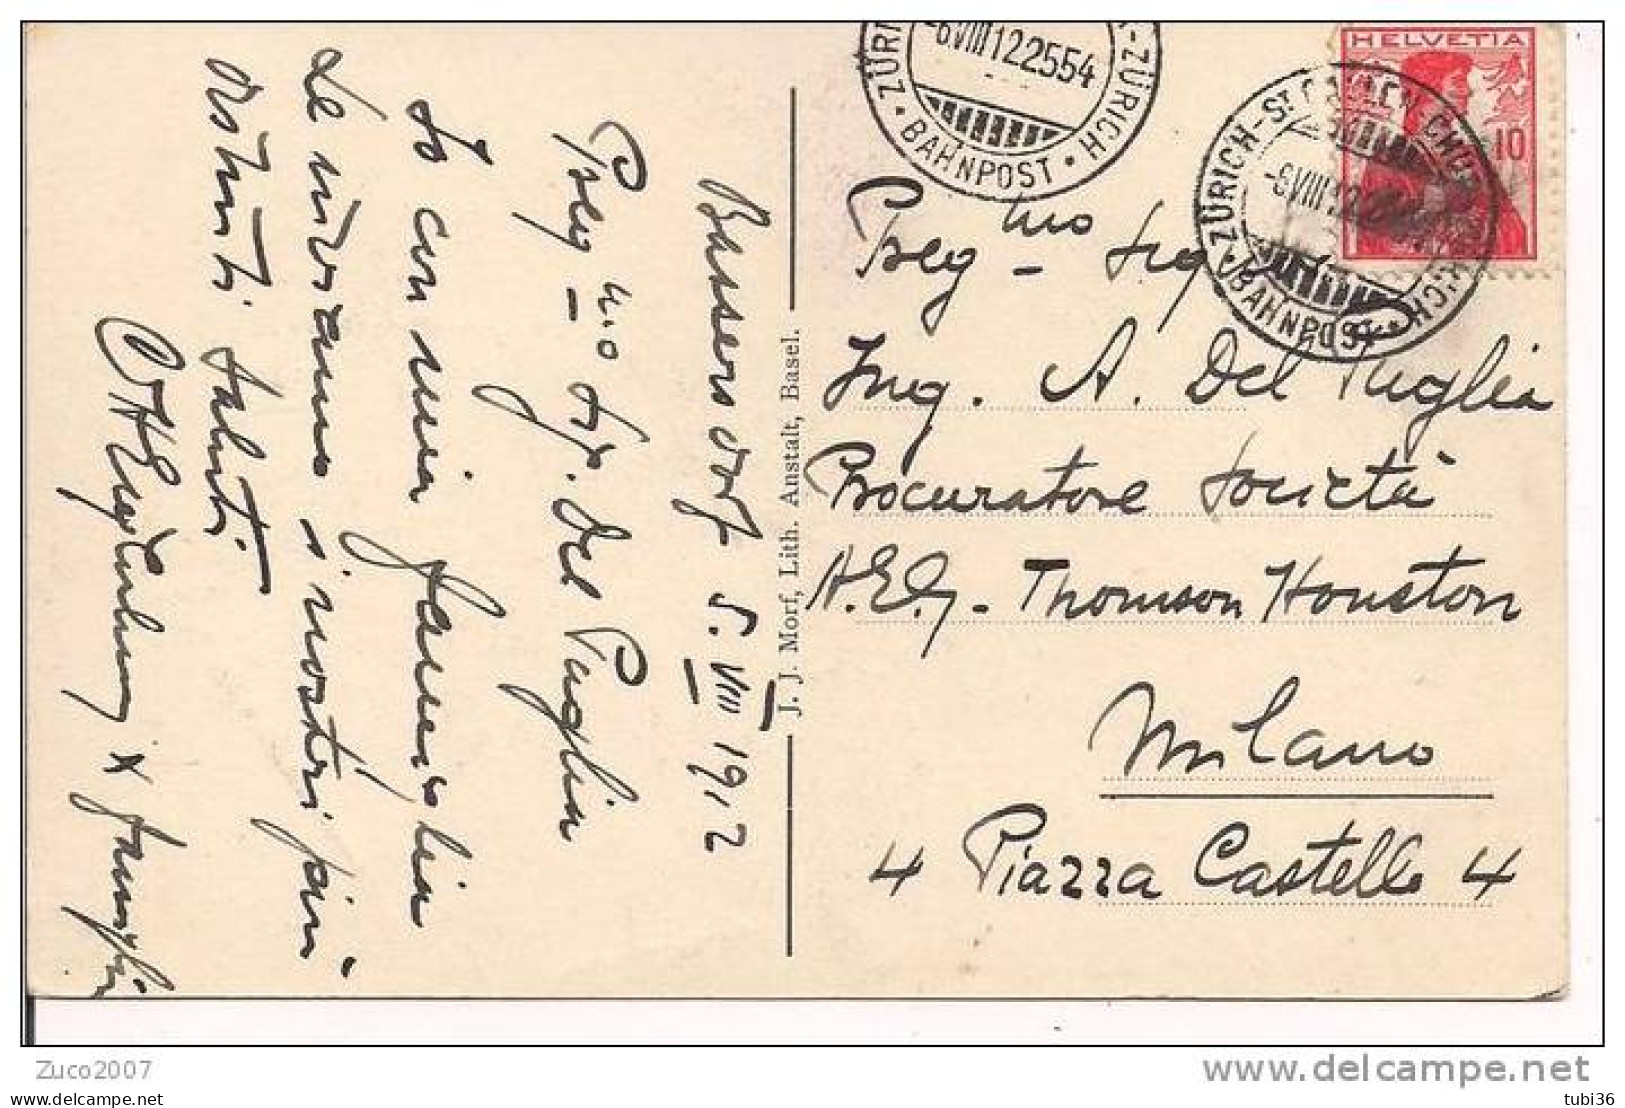 Bassersdorf 5. VIII 1912
Preg - mo Sig. Del Puglia
Io con mia famiglia
Le inviamo i nostri più
distinti saluti
famiglia
J. J. Morf, Lith. Anstalt, Basel.
-6.VIII12 2554
ZÜRICH
BAHNPOST
HELVETIA
10
ZÜRICH - ST GALLEN - CHUR - ZÜRICH
-6.VIII12
BAHNPOST
Preg - mo Sig
Ing. A. Del Puglia
Procuratore Società
A.E.G. - Thomson Houston
Milano
4 Piazza Castello 4
Zuco2007
www.delcampe.net
tubi36